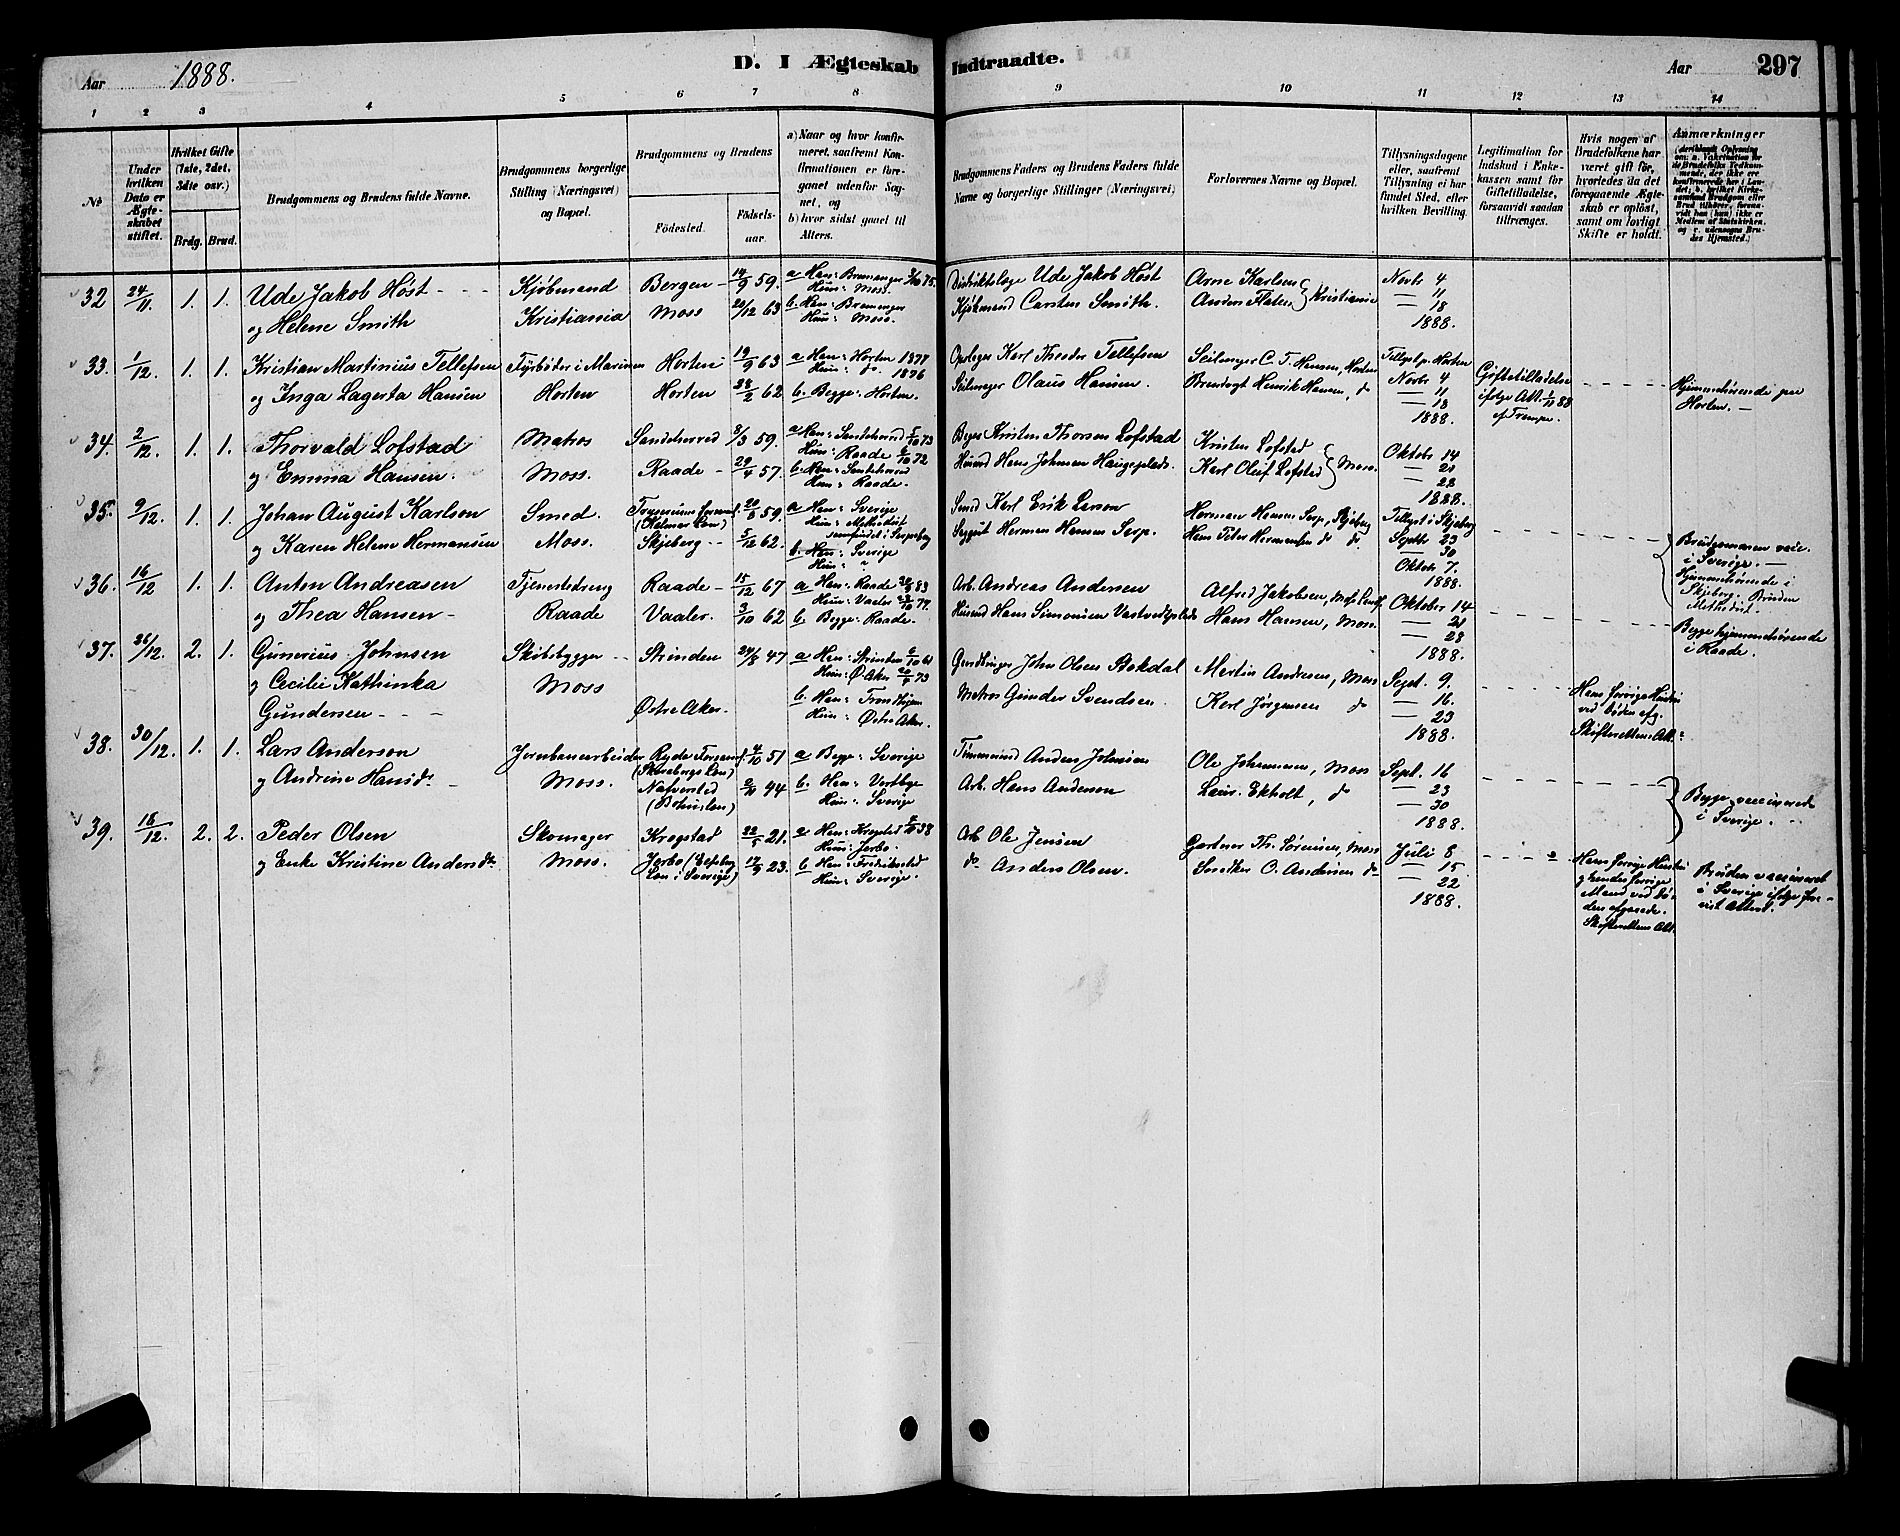 Aar 1888. D. I Ægteskab Indtraadte. Aar 297
1 2 3 4 5 6 7 8 9 10 11 12 13 14
No.
Under hvilken Dato er Ægteskabet stiftet.
Hvilket Gifte (1ste, 2det, 3dte osv.)
Brdg. Brud.
Brudgommens og Brudens fulde Navne.
Brudgommens borgerlige Stilling (Næringsvei) og Bopæl.
Brudgommens og Brudens
Födested. Födselsaar.
a) Naar og hvor konfirmeret, saafremt Konfirmationen er foregaaet udenfor Sognet, og
b) hvor sidst gaaet til Alters.
Brudgommens Faders og Brudens Faders fulde Navne og borgerlige Stillinger (Næringsvei).
Forlovernes Navne og Bopæl.
Tillysningsdagene eller, saafremt Tillysning ei har fundet Sted, efter hvilken Bevilling.
Legitimation for Indskud i Enkekassen samt for Giftetilladelse, forsaavidt saadan tiltrænges.
Hvis nogen af Brudefolkene har været gift för, hvorledes da det foregaaende Ægteskab er oplöst, samt om lovligt Skifte er holdt.
Anmærkninger
32 24/11. 1. 1. Ude Jakob Høst Kjøbmand Bergen 59. a Han: Bremanger 75. Distriktslæge Ude Jakob Høst Arne Karlsen Novbr 4
Hun: Moss.
og Helene Smith Kristiania Moss 22/12 63 b. Han: Bremanger Kjøbmand Carsten Smith. Anders Flaten Kristiania — 11
Hun: Moss. — 18
1888.
33. 1/12. 1. 1. Kristian Martinius Tellefsen Fyrbøder i Marinen Horten 19/9 63 a Han: Horten 1877 Karl Theodor Tellefsen Seilmager C. T. Hansen, Horten Tillyst p. Horten
Hun: do. 1876
og Inga Lagerta Hansen Horten Horten 28/2 62 b. Begge: Horten. Seilmager Olaus Hansen. Henrik Hansen, do Novbr 4 Giftetilladelse Hjemmehørende paa
— 11 ifølge Att. 88 Horten.
— 18
1888.
34. 2/12. 1. 1. Thorvald Lofstad Matros Sandeherred 8/3 59. a Han: Sandeherred 73 Kristen Thorsen Lofstad Kristen Lofstad Oktobr 14
Hun: Raade 72
og Emma Hansen. Moss. Raade 29/4 57. b. Han: Sandeherred Husmd Hans Johnsen Haugeplads. Karl Oluf Lofsted Moss. — 21
Hun: Raade. — 28
1888.
35. 9/12. 1. 1. Johan August Karlson Smed. 59. a Han: Sverige Smed Karl Erik Larson Herman Hansen Serp, Skjeberg Tillyst i Skjeberg
(Kalmar Len) Hun: Methodist
samfundet i Sarpsborg
og Karen Helene Hermansen Moss. Skjeberg 62. b. Han: Sverige Herman Hansen Serp. Hans Peter Hermansen do do. Septb. 23 Brudgommen vacc.
Hun: " — 30 i Sverige.
Oktob. 7. Hjemmehørende i
1888. Skjeberg. Bruden
Methodist.
36. 16/12 1. 1. Anton Andreasen Tjenestedreng Raade 15/12 67 a Han: Raade 83 Arb. Andreas Andersen Alfred Jakobsen, Oktober 14
Hun: Vaaler 77.
og Thea Hansen Raade Vaaler. 3/10 62 b Begge: Raade. Husmd Hans Simonsen Hans Hansen, Moss. — 21 Begge hjemmehørende
— 28 i Raade.
1888.
37. 26/12. 2. 1. Gunerius Johnsen Skibsbygger Strinden 24/8 47 a Han: Strinden 61 John Olsen Bakdal Martin Andresen, Moss Sept. 9.
Hun: Ø. Aker 73
og Cecilie Kathinka Moss b. Han: Trondhjem Matros Gunder Svendsen. Karl Jørgensen do — 16. Hans forrige Hustru
Gundersen Østre Aker. Hun: Østre Aker. — 23 ved Døden afg.
1888. Skifterettens Att.
38. 30/12. 1. 1. Lars Anderson Jernbanearbeider Ryda 4/10 51 a Begge: Sverige Tømmermd Anders Johnson Ole Johannesen, Moss Sept. 16
(Skaraborgs Len)
og Andrine Hansdr. Moss. Nafverstad 44 b. Han: Vestby Arb. Hans Anderson Laur. Ekholt, do — 23 Begge vaccinerede
(Bohuslen) Hun: Sverige — 30 i Sverige.
1888.
39. 16/12. 2. 2. Peder Olsen Skomager Krogstad 22/5 21. a Han: Krogstad 38 Arb. Ole Jensen Gartner Th. Sørensen, Moss Juli 8 Hans forrige Hustru
Hun: Jerbo.
og Enke Kristine Andersdr. Moss. Jerbo 17/9 23. b Han: Fredrikstad do. Anders Olsen. Snedker O. Andersen do — 15 og hendes forrige Bruden vaccineret
Len i Sverige) Hun: Sverige. — 22 Mand ved Dø- i Sverige ifølge fore-
1888. den afgaaede. vist Attest.
Skifterettens Att.